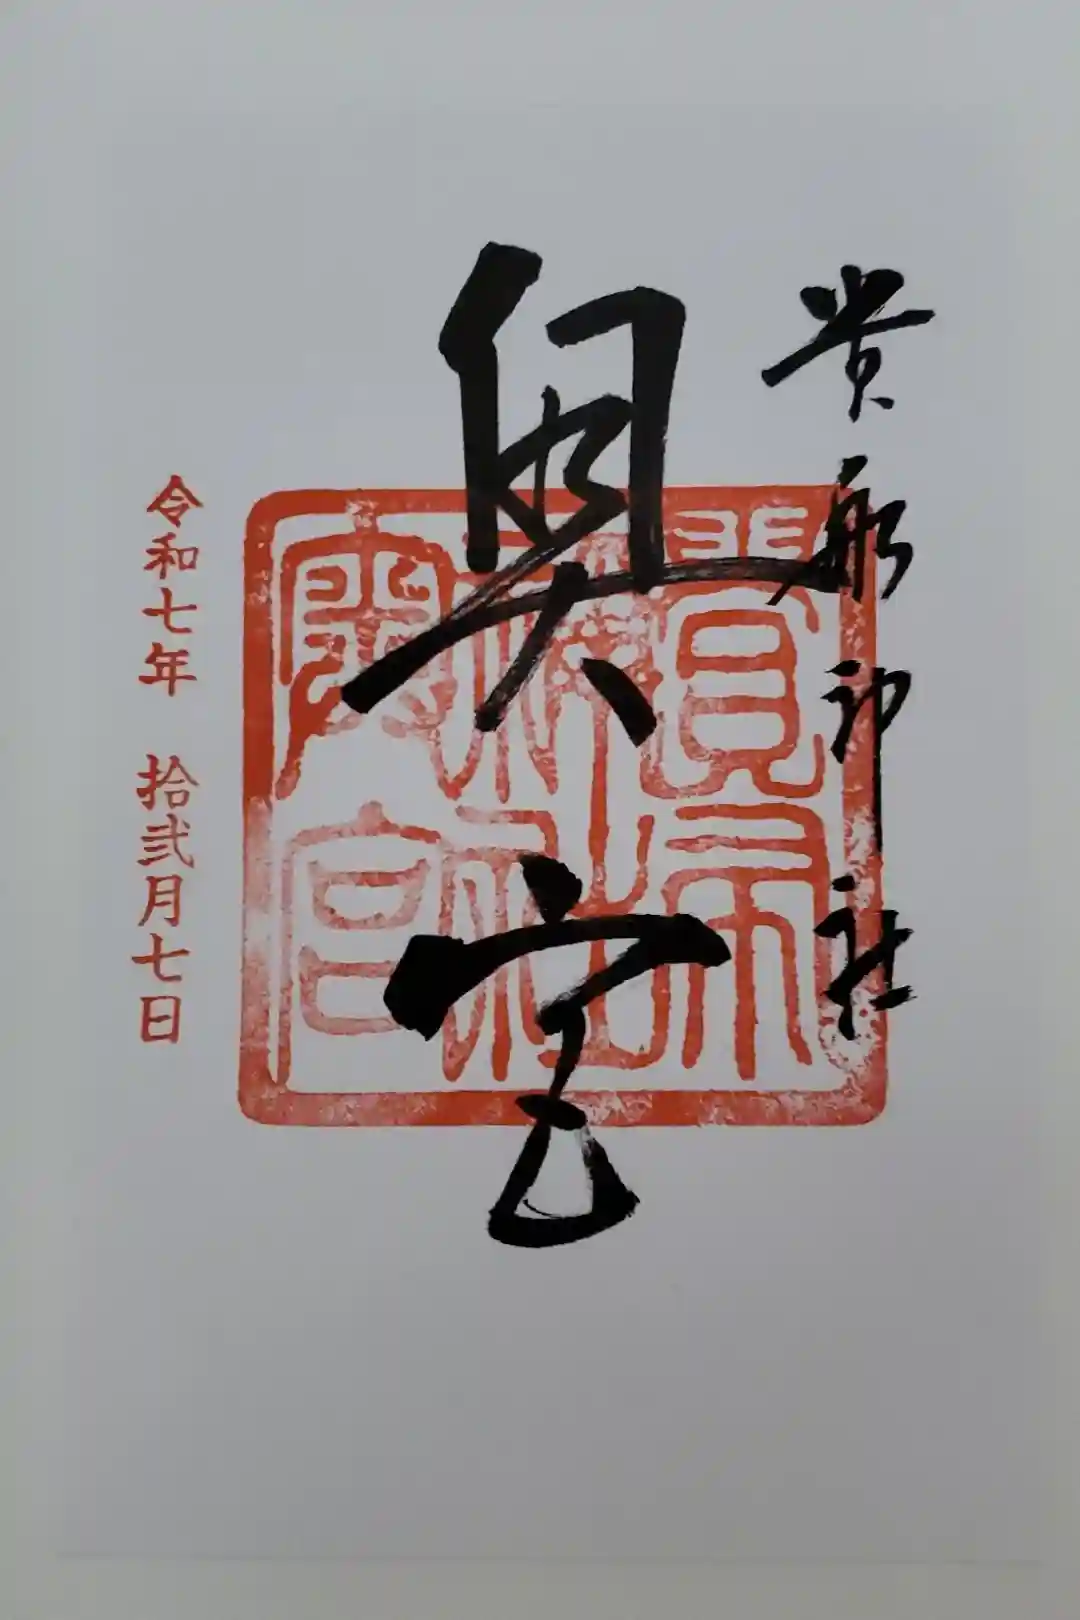 貴船神社
奥宮
貴布祢神社奥宮
令和七年 拾弐月七日